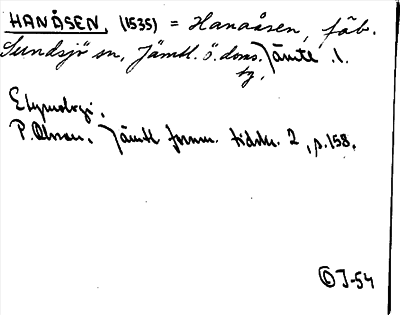 HANÅSEN, (1535) = Hanaåsen, fäb.
Sundsjö sn, Jämtl. ö. doms. Jämtl. l.
tg,
Etymologi.
P. Olsson. Jämtl fornm. tidskr. 2, s. 158.
J-54